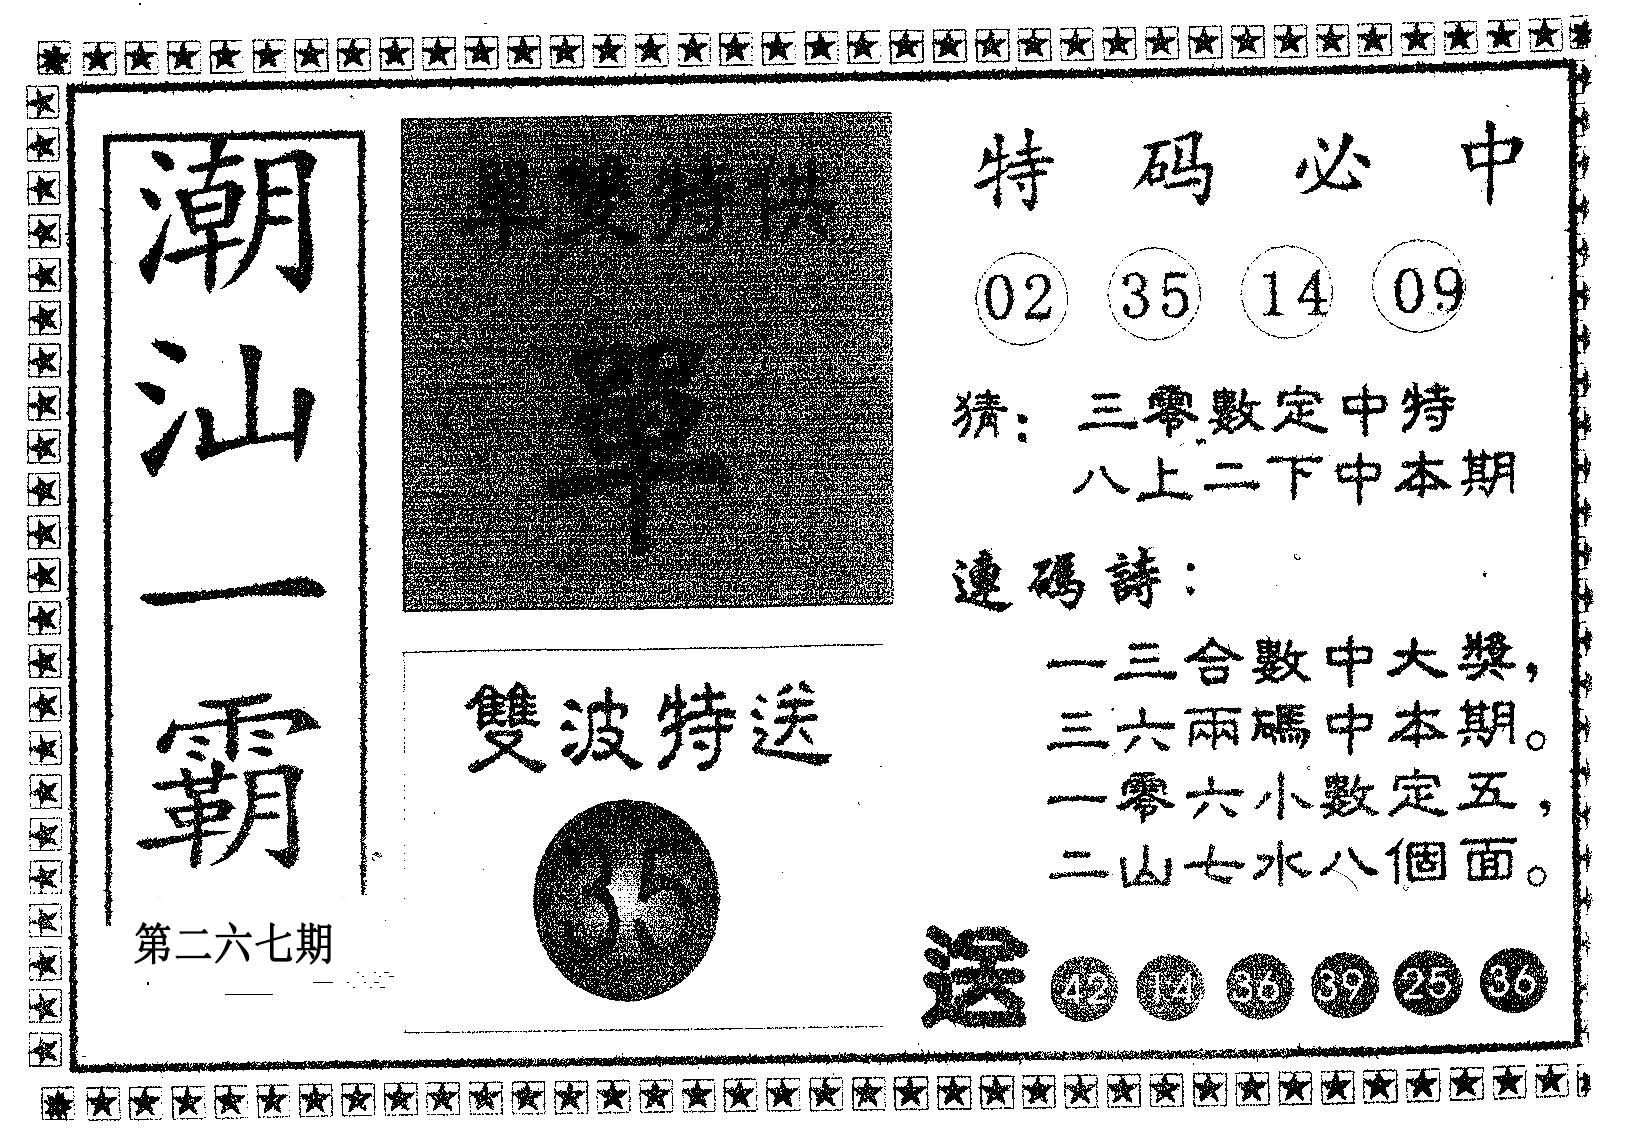 潮汕一霸
第二六七期
單雙特供
單
雙波特送
35
特码必中
02 35 14 09
猜：三零數定中特
八上二下中本期
連碼詩：
一三合數中大獎，
三六兩碼中本期。
一零六小數定五，
二山七水八個面。
送 42 14 36 39 25 36